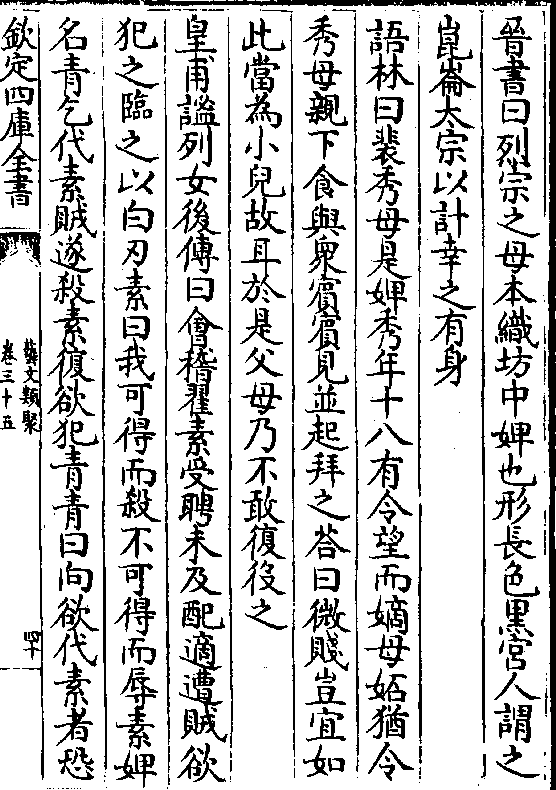 晉書曰烈宗之母本織坊中婢也形長色黒宫人謂之
崑崙太宗以計幸之有身
語林曰裴秀母是婢秀年十八有令望而嫡母妬猶令
秀母親下食與衆賔賔見並起拜之荅曰微賤豈宜如
此當為小兒故耳於是父母乃不敢復役之
皇甫謐列女後傳曰會稽翟素受聘未及配適遭賊欲
犯之臨之以白刃素曰我可得而殺不可得而辱素婢
名青乞代素賊遂殺素復欲犯青青曰向欲代素者恐
欽定四庫全書
藝文類聚
卷三十五
四十